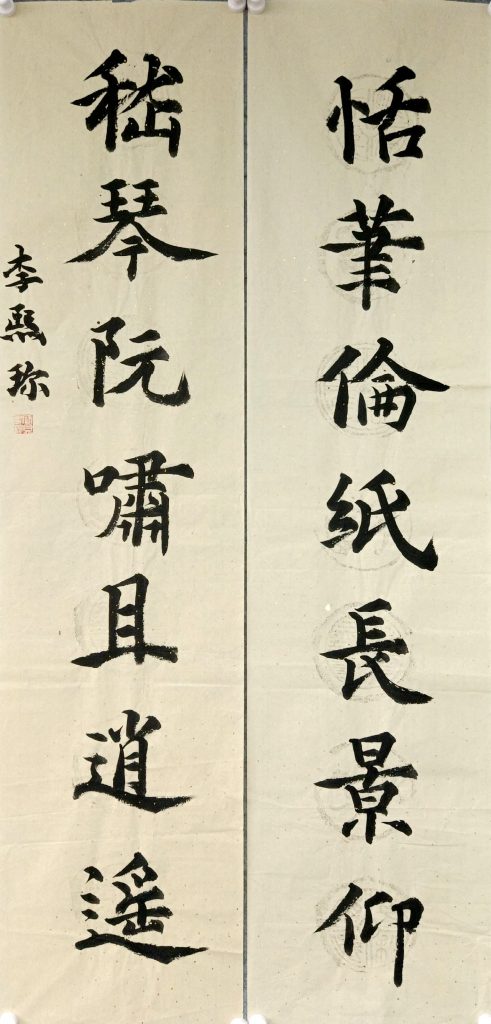 恬筆倫紙長景仰
嵇琴阮嘯且逍遙
李熙珎